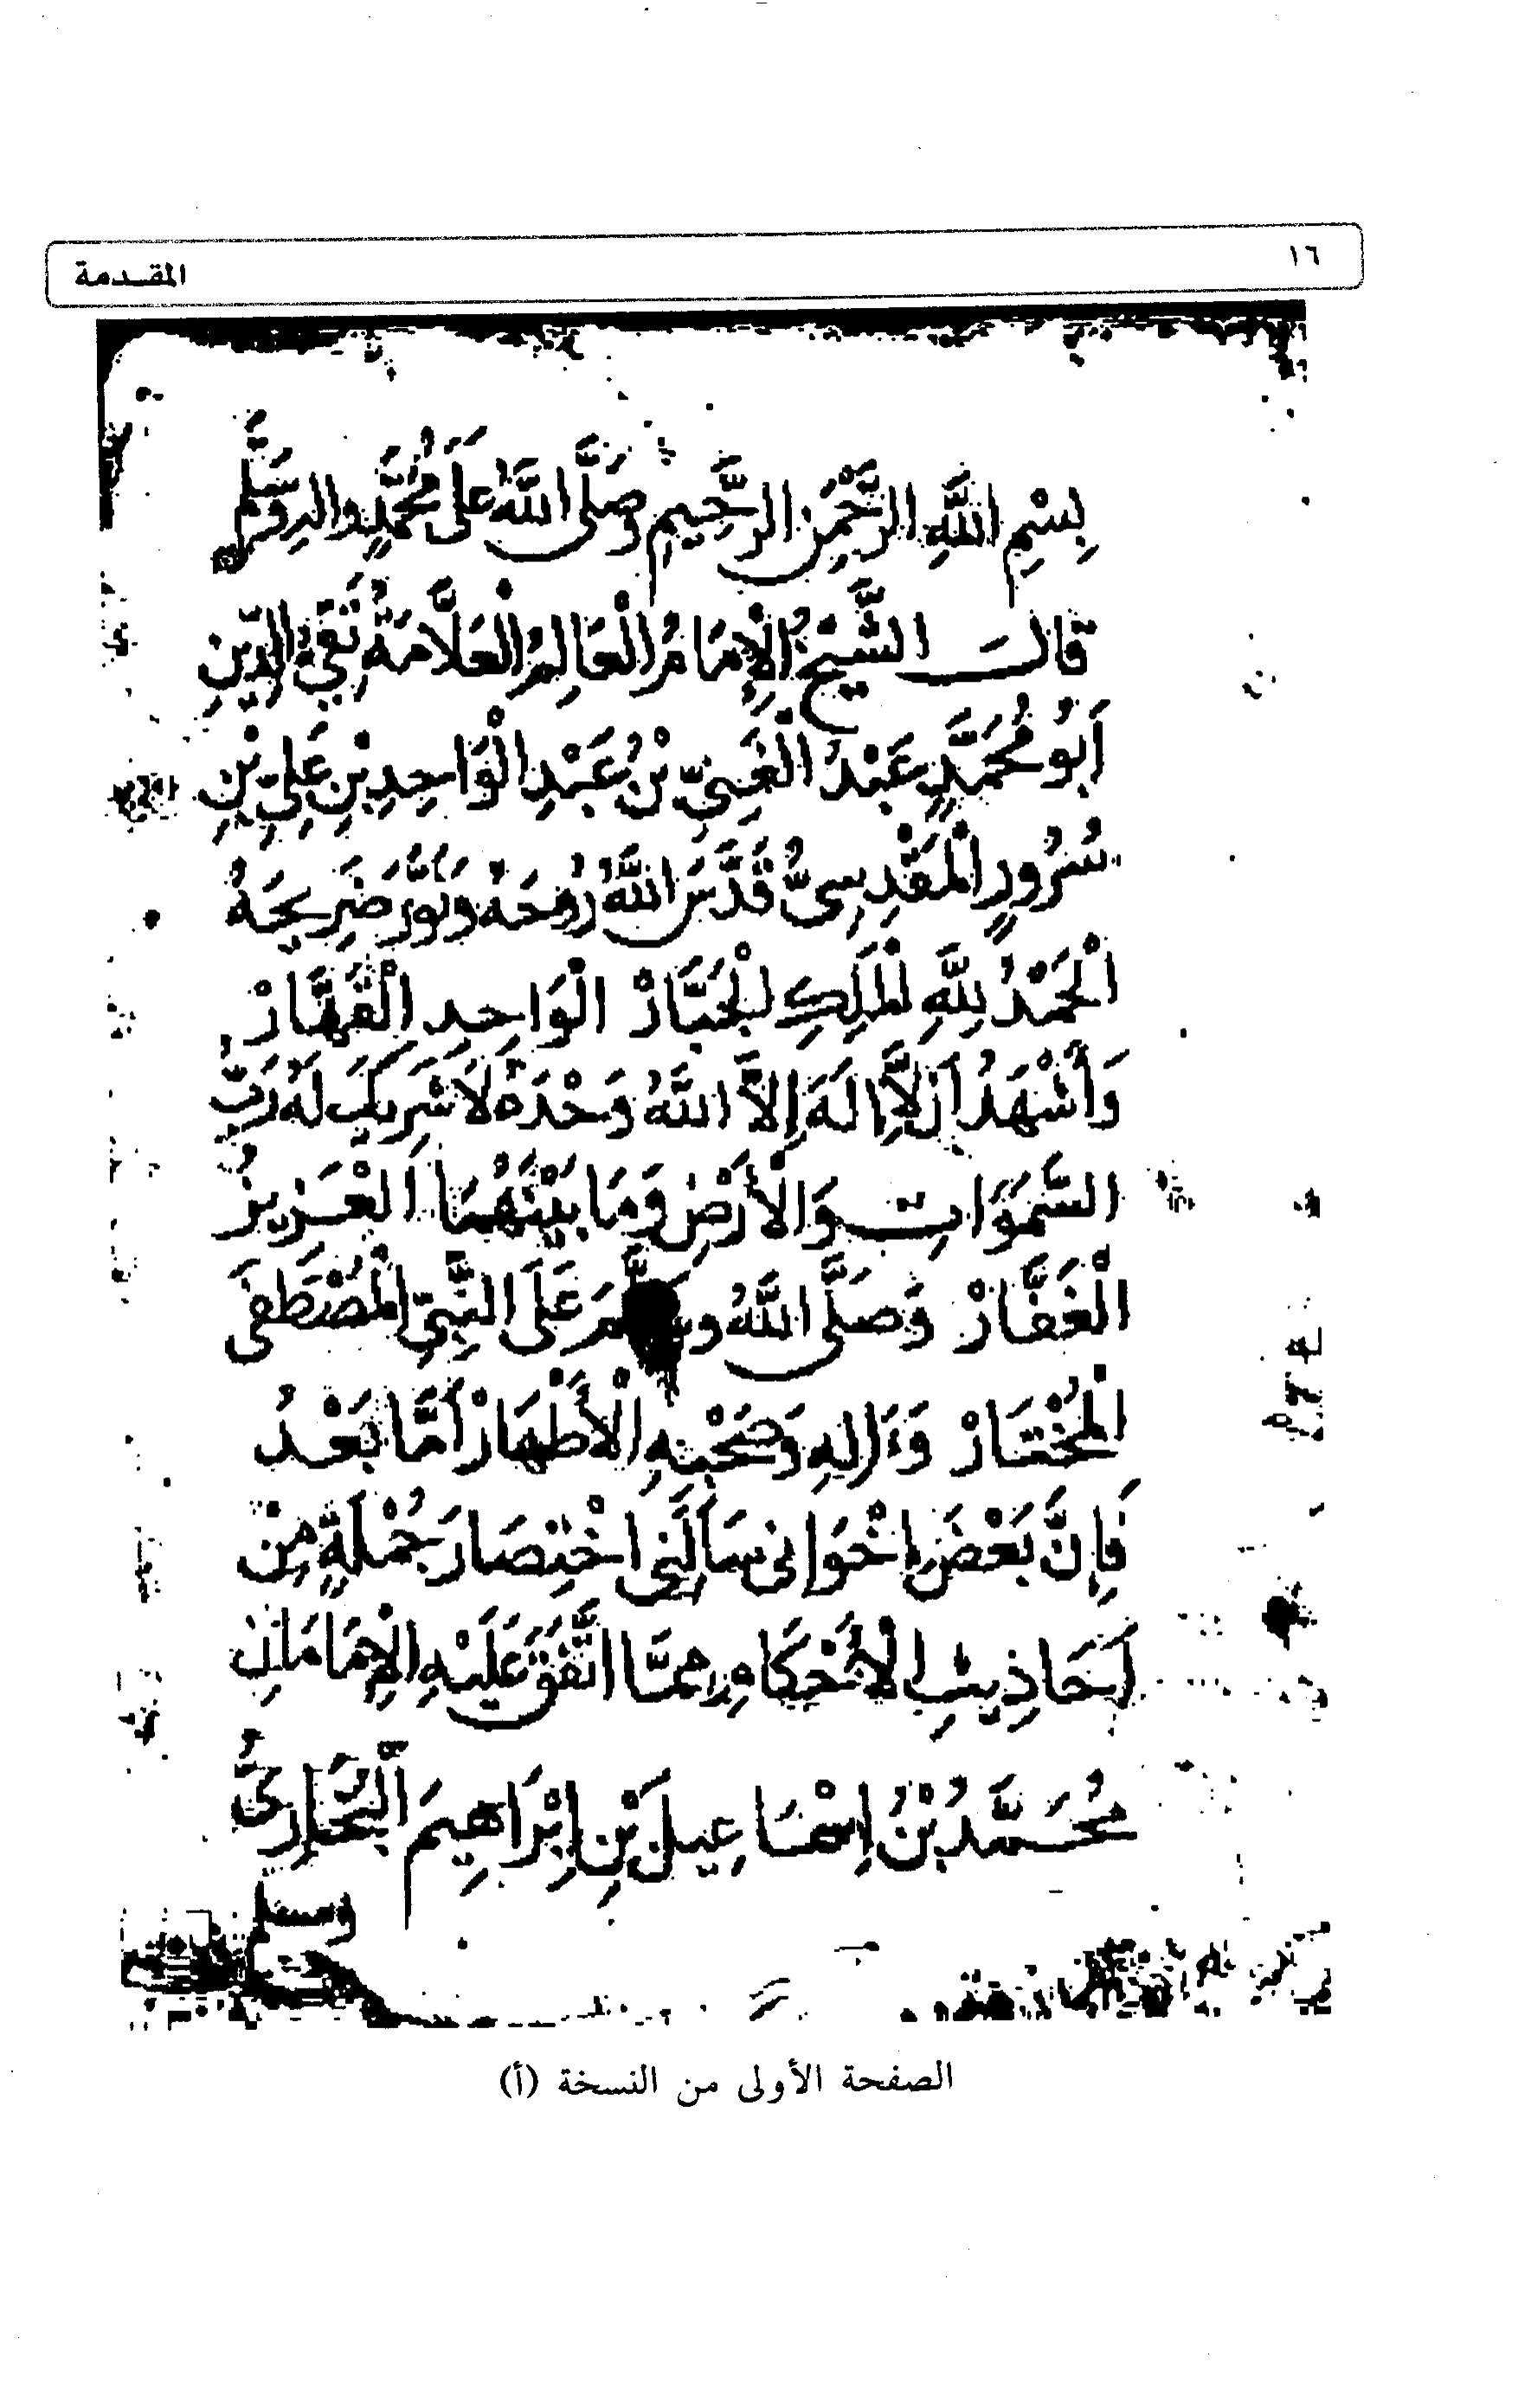 ١٦
المقدمة
بِسْمِ اللَّهِ الرَّحْمَنِ الرَّحِيمِ وَصَلَّى اللَّهُ عَلَى مُحَمَّدٍ وَالِهِ وَسَلَّمَ
قَالَ الشَّيْخُ الْإِمَامُ الْعَالِمُ الْعَلَّامَةُ تَقِيُّ الدِّينِ
أَبُو مُحَمَّدٍ عَبْدُ الْغَنِيِّ بْنُ عَبْدِ الْوَاحِدِ بْنِ عَلِيِّ بْنِ
سُرُورٍ الْمَقْدِسِىُّ قَدَّسَ اللَّهُ رُوحَهُ وَنَوَّرَ ضَرِيحَهُ
الْحَمْدُ لِلَّهِ الْمَلِكِ الْجَبَّارْ الْوَاحِدِ الْقَهَّارْ
وَأَشْهَدُ أَن لَّا إِلَهَ إِلَّا اللَّهُ وَحْدَهُ لَا شَرِيكَ لَهُ رَبُّ
السَّمَوَاتِ وَالْأَرْضِ وَمَا بَيْنَهُمَا الْعَزِيزُ
الْغَفَّارْ وَصَلَّى اللَّهُ وسَلَّمَ عَلَى النَّبِيِّ الْمُصْطَفَى
الْمُخْتَارْ وَءَالِهِ وَصَحْبِهِ الْأَطْهَارْ أَمَّا بَعْدُ
فَإِنَّ بَعْضَ إِخْوَانِى سَأَلَنِى اخْتِصَارَ جُمْلَةٍ مِنْ
أَحَادِيثِ الْأَحْكَامِ مِمَّا اتَّفَقَ عَلَيْهِ الْإِمَامَانِ
مُحَمَّدُ بْنُ إِسْمَاعِيلَ بْنِ إِبْرَاهِيمَ الْبُخَارِىُّ
ومسلم
الصفحة الأولى من النسخة (أ)